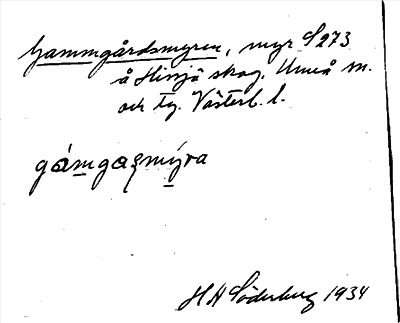 Gammgårdsmyren, myr S273
å Hissjö skog, Umeå sn.
och tg. Västerb. l.
gámgaʂmýra
H H Söderberg 1934